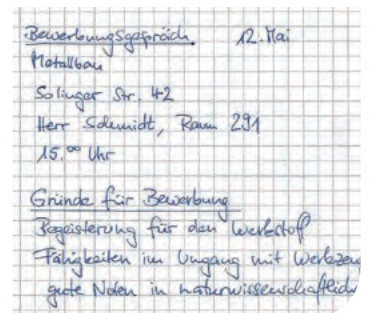 Bewerbungsgespräch 12. Mai
Metallbau
Solinger Str. 42
Herr Schmidt, Raum 291
15.⁰⁰ Uhr
Gründe für Bewerbung
Begeisterung für den Werkstoff
Fähigkeiten im Umgang mit Werkzeu
gute Noten in naturwissenschaftlich